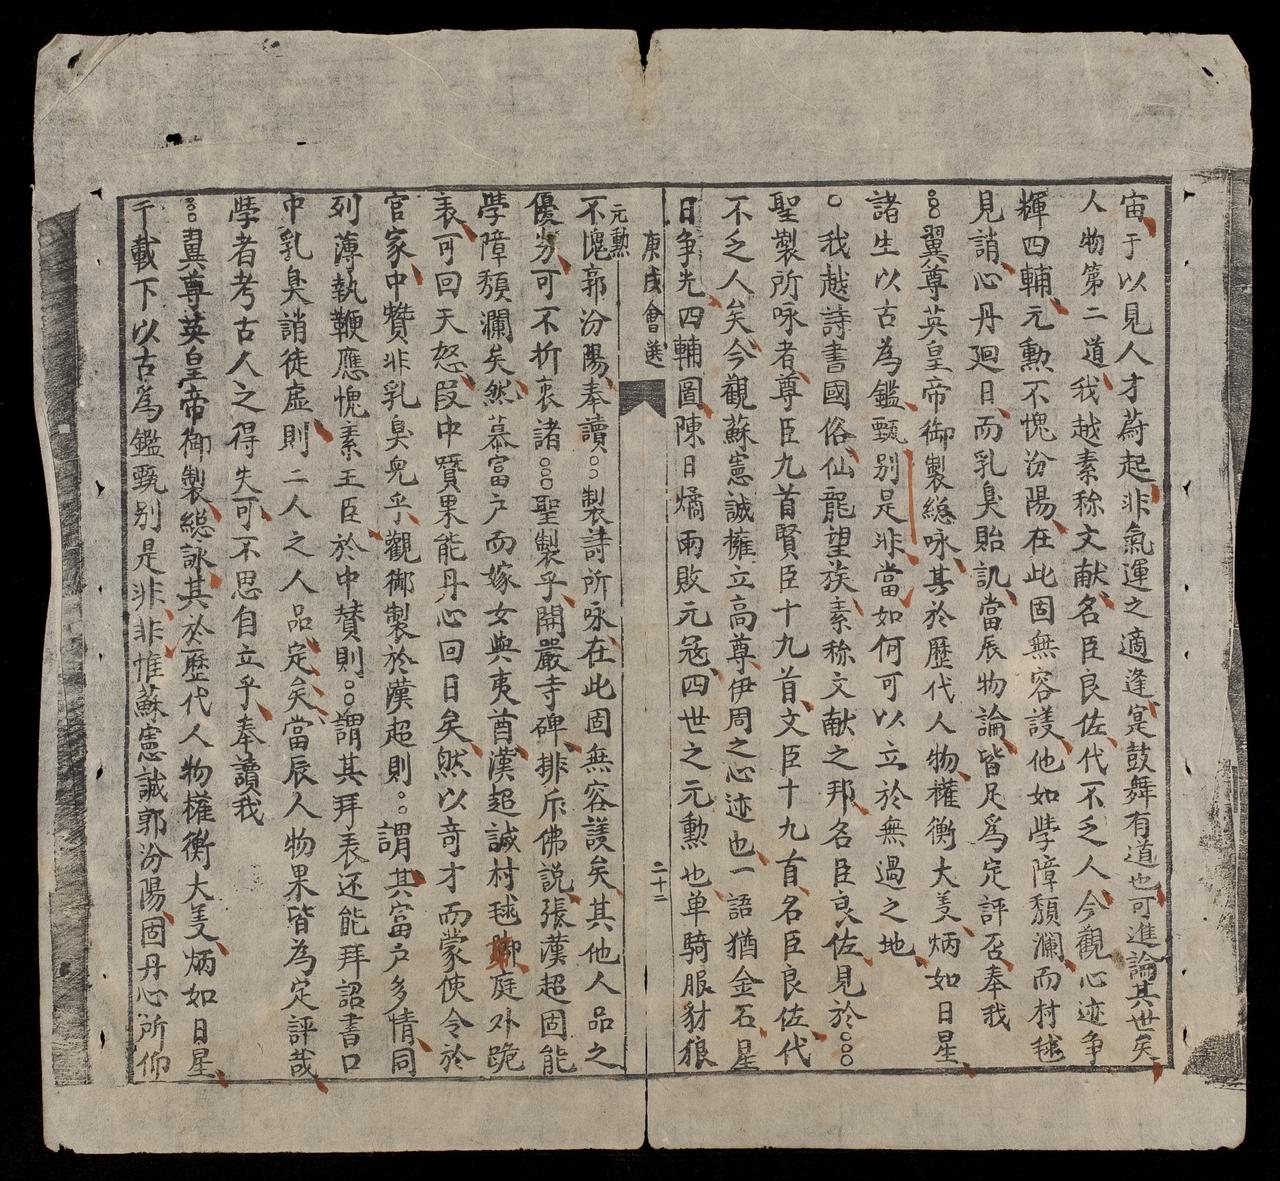 宙于以見人才蔚起非氣運之適逢寔鼓舞有道也可進論其世矣
人物第二道我越素称文献名臣良佐代不乏人今觀心迹争
輝四輔元勲不愧汾陽在此固無容議他如學障頽瀾而村毬
見誚心丹廻日而乳臭貽訊當辰物論皆足爲定評否奉我
○○翼尊英皇帝御製總咏其於歷代人物權衡大義炳如日星
諸生以古為鑑甄别是非當如何可以立於無過之地
○我越詩書國俗仙龍望族素称文献之邦名臣良佐見於○○○
聖製所咏者尊臣九首賢臣十九首文臣十九首名臣良佐代
不乏人矣今觀蘇憲誠擁立高尊伊周之心迹也一語猶金石星
日争光四輔圖陳日燏雨敗元冦四世之元勲也单騎服豺狼
庚戌會選
二十三
元勲
不愧郭汾陽奉讀○○製詩所咏在此固無容議矣其他人品之
優劣可不折衷諸○○○聖製乎開嚴寺碑排斥佛説張漢超固能
學障頽瀾矣然慕富户而嫁女與夷酋漢超誠村毬聊庭外跪
表可回天怒段中贒果能丹心回日矣然以竒才而蒙使令於
官家中贊非乳臭皃乎觀御製於漢超則○○謂其富户多情同
列薄執鞭應愧素王臣於中賛則○○謂其拜表还能拜詔書口
中乳臭誚徒虚則二人之人品定矣當辰人物果皆為定評哉
學者考古人之得失可不思自立乎奉讀我
○○翼尊英皇帝御製總詠其於歷代人物權衡大義炳如日星
千載下以古爲鑑甄别是非非惟蘇憲誠郭汾陽固丹心所仰